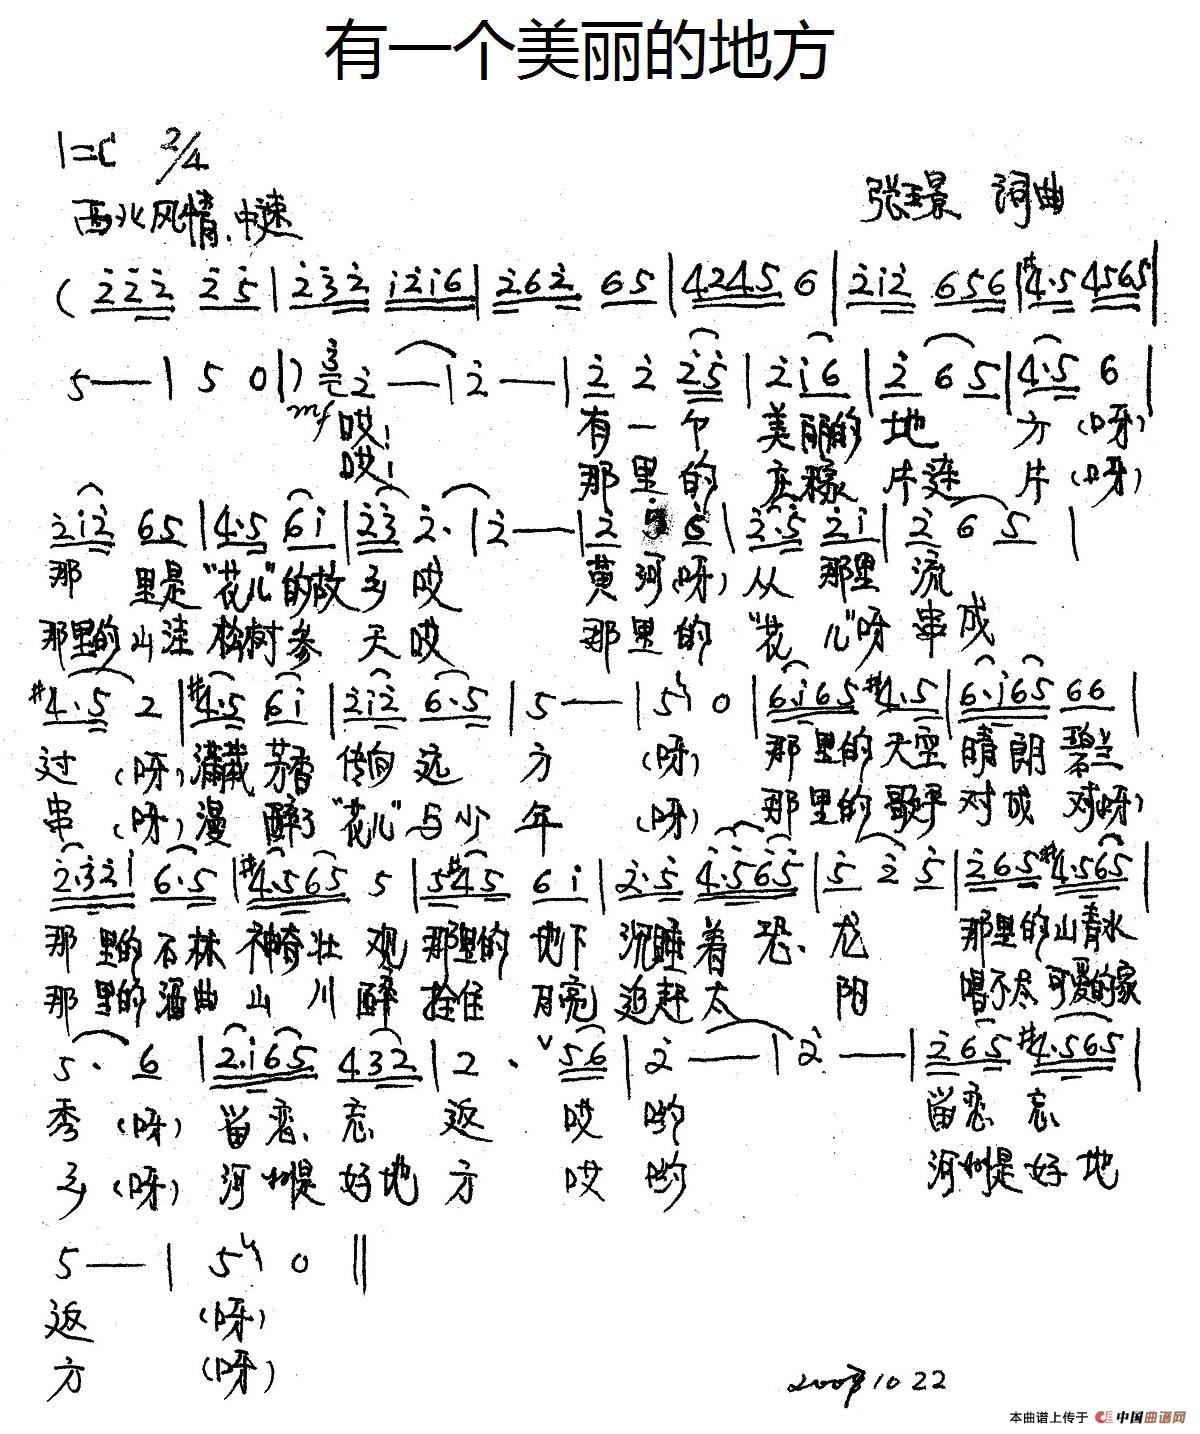 有一个美丽的地方
1=C 2/4
西北风情、中速
张玉景 词曲
( 2̇2̇2̇ 2̇5̇ | 2̇3̇2̇ i2̇i6 | 2̇62̇ 65 | 4245 6 | 2̇i2̇ 656 | #4·5 4565 |
5 — | 5 0 | ) 3̇2̇ — | 2̇ — | 2̇ 2̇ 2̇5̇ | 2̇i6 | 2̇ 6 5 | 4·5 6 |
mf
哎! 有一个 美丽的 地 方 (呀)
哎! 那里的 庄稼 片连 片 (呀)
2̇i2̇ 65 | 4·5 6i | 2̇3̇ 2̇· | 2̇ — | 2̇ 5̇ 6̇ | 2̇·5̇ 2̇i | 2̇ 6 5 |
那 里是“花儿”的故乡 哎 黄河(呀) 从 那里 流
那里的山洼 松树参 天哎 那里的 “花 儿”呀 串成
#4·5 2 | #4·5 6i | 2̇i2̇ 6·5 | 5 — | 5 0 | 6·i65 #4·5 | 6·i65 66 |
过 (呀) 满载 芳香 传向 远 方 (呀) 那里的 天空 晴朗 碧兰
串 (呀) 漫 醉了“花儿”与少 年 (呀) 那里的 歌乎 对成 对(呀)
2̇·3̇2̇i 6·5 | #4·565 5 | 5#45 6i | 2̇·5̇ 4̇·5̇6̇5̇ | 5̇ 2̇ 5̇ | 2̇65 #4·565 |
那 里的 石林 神奇壮 观 那里的 地下 沉睡着 恐 龙 那里的山青水
那 里的 酒曲 山 川 醉 拴住 月亮 追赶太 阳 唱不尽可爱的家
5· 6 | 2̇·i65 432 | 2 · ∨ 56 | 2̇ — | 2̇ — | 2̇65 #4·565 |
秀 (呀) 留恋 忘 返 哎 哟 留恋 忘
乡 (呀) 河州是 好地 方 哎 哟 河州是好 地
5 — | 5 0 ‖
返 (呀)
方 (呀)
10 22
本曲谱上传于 中国曲谱网